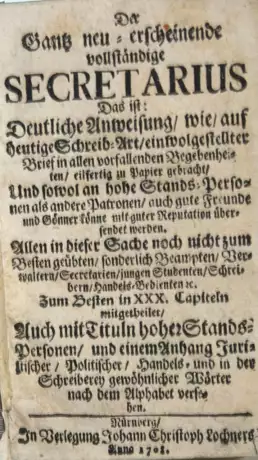 Der
Gantz neu-erscheinende
vollständige
SECRETARIUS
Das ist:
Deutliche Anweisung/ wie/ auf
heutige Schreib-Art/ ein wolgestellter
Brief in allen vorfallenden Begebenhei-
ten/ eilfertig zu Papier gebracht/
Und sowol an hohe Stands-Perso-
nen als andere Patronen/ auch gute Freunde
und Gönner könne mit guter Reputation über-
sendet werden.
Allen in dieser Sache noch nicht zum
Besten geübten/ sonderlich Beampten/ Ver-
waltern/ Secretarien/ jungen Studenten/ Schrei-
bern/ Handels-Bedienten ꝛc.
Zum Besten in XXX. Capiteln
mitgetheilet/
Auch mit Tituln hoher Stands-
Personen/ und einem Anhang Juri-
stischer/ Politischer/ Handels- und in der
Schreiberey gewöhnlicher Wörter
nach dem Alphabet verse-
hen.
Nürnberg/
In Verlegung Johann Christoph Lochners
Anno 1701.